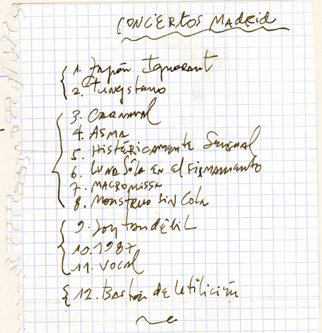 CONCIERTOS MADRID
1. Ignorant
2. Tungsteno
3. CARNAVAL
4. ASMA
5. HISTÉRICAMENTE
6. LUNA SÓLA EN EL FIRMAMENTO
7. MACROMISSA
8. MONSTRUO SIN COLA
9. Soy tan débil
10. 1987
11. VOCAL
12. de